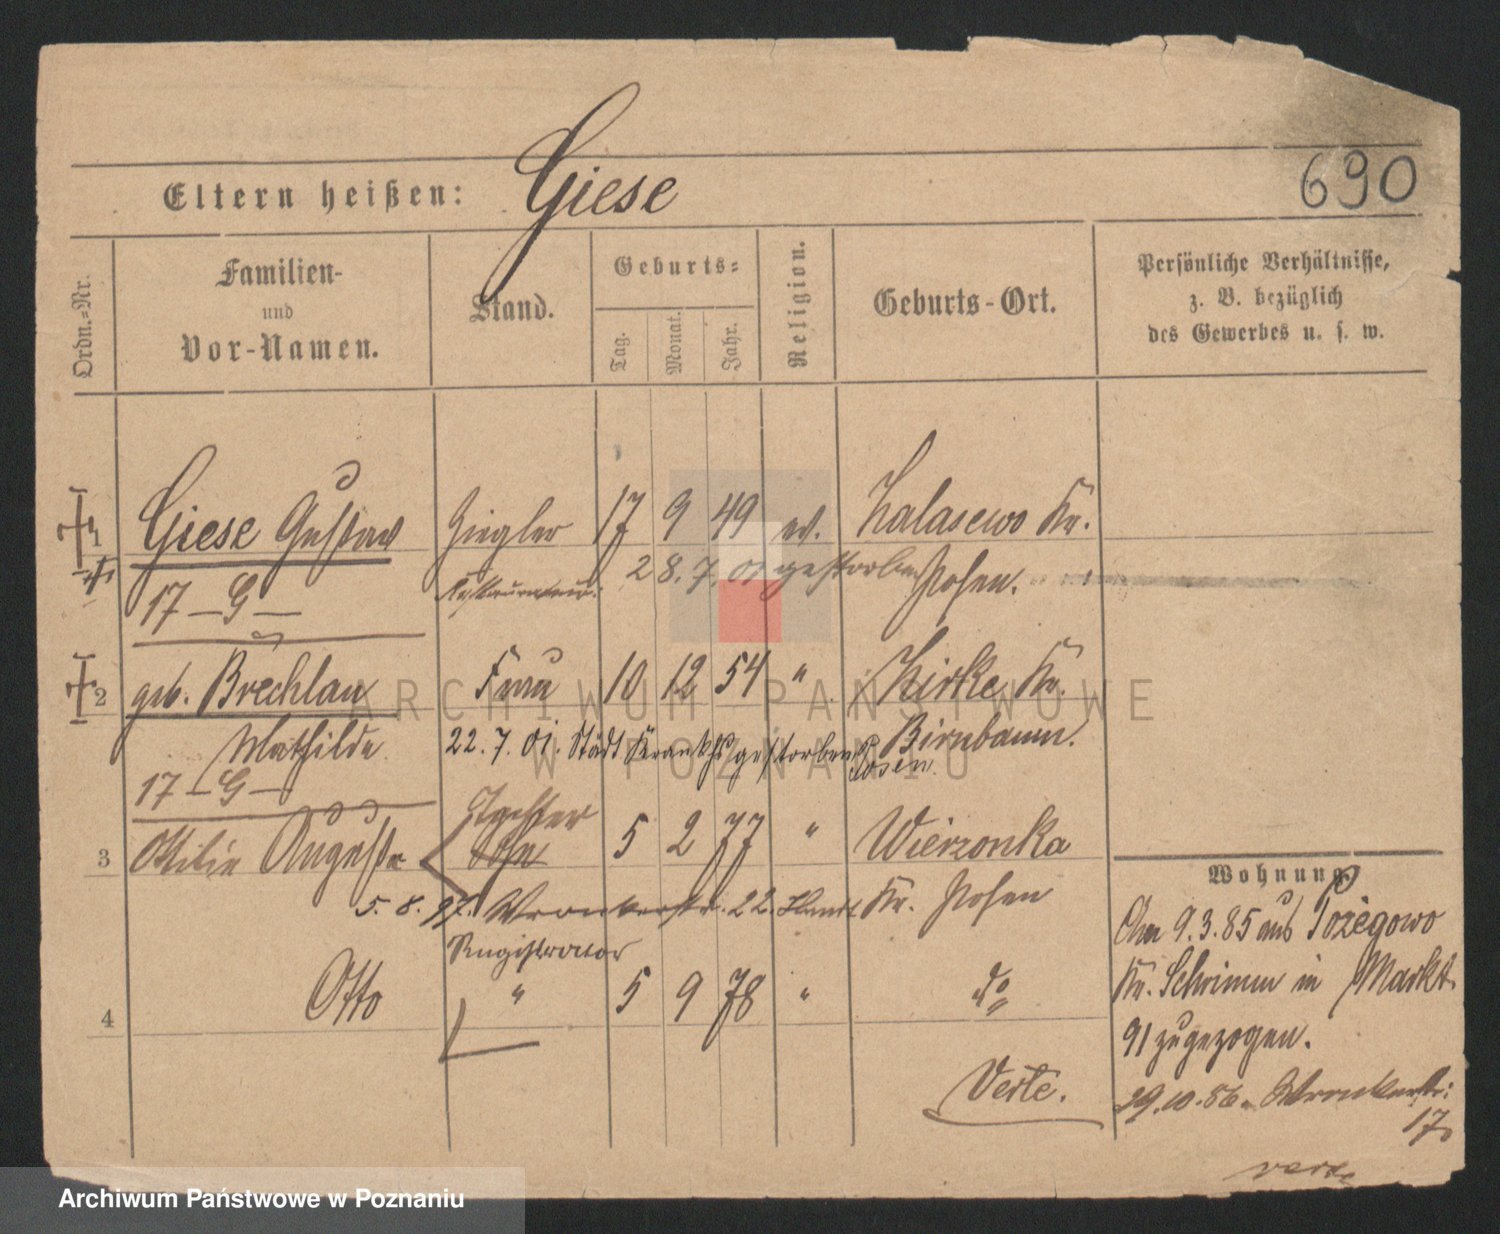 690
Eltern heißen: Giese
Ordn.-Nr.
Familien-
und
Vor-Namen.
Stand.
Geburts-
Tag.
Monat.
Jahr.
Religion.
Geburts-Ort.
Persönliche Verhältnisse,
z. B. bezüglich
des Gewerbes u. s. w.
1 Giese Gustav Ziegler 17 9 49 ev. Zalasewo Kr.
28.7.01 gestorben Posen.
17 – G –
2 geb. Brechlau Frau 10 12 54 " Zirke Kr.
Mathilde 22.7.01. Städt Krankhs gestorben Birnbaum.
Posen.
17 – G –
Tochter
3 Ottilie Auguste Sohn 5 2 77 " Wierzonka
5.8.97. Wronkerstr. 22. Kr. Posen
Registrator
4 Otto " 5 9 78 " do
Verte.
Wohnung.
Am 9.3.85 aus Pożegowo
Kr. Schrimm in Markt
91 zugezogen.
29.10.86. Wronkerstr:
17.
verte
ARCHIWUM PAŃSTWOWE
W POZNANIU
Archiwum Państwowe w Poznaniu